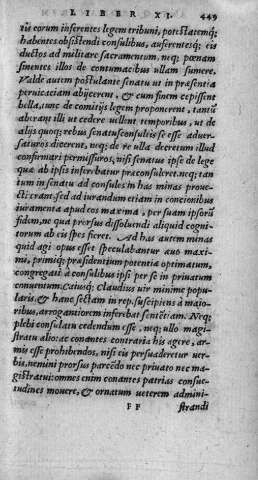 LIBER XI. 449
tis eorum inferentes legem tribuni, potestatemq́;
habentes obsistendi consulibus, auferentesq; eis
ductos ad militare sacramentum, neq; pœnam
sinentes illos de contumacibus ullam sumere.
Valde autem postulante senatu ut in præsentia
peruicaciam abijcerent, & cum finem cepissent
bella, tunc de comitijs legem proponerent, tantū
aberant illi ut cedere uellent temporibus, ut de
alijs quoq; rebus senatusconsultis se esse aduer-
saturos dicerent, neq; de re ulla decretum illud
confirmari permissuros, nisi senatus ipse de lege
quæ ab ipsis inferebatur præconsuleret. neq; tan
tum in senatu ad consules in has minas prouec
ti erant, sed ad iurandum etiam in concionibus
iuramenta apud eos maxima, per suam ipsorū
fidem, ne qua prorsus dissoluendi aliquid cogni
torum ab eis spes fieret. Ad has autem minas
quid agi opus esset speculabantur auo maxi-
mi, primiq; præsidentium potentia optimatum,
congregati à consulibus ipsi per se in priuatum
conuentum. Caiusq; Claudius uir minime popu-
laris, & hanc sectam in rep. suscipiens à maio-
ribus, arrogantiorem inferebat sentētiam. Neq;
plebi consulatu cedendum esse, neq; ullo magi-
stratu alio: ac conantes contraria his agere, ar-
mis esse prohibendos, nisi eis persuaderetur uer-
bis, nemini prorsus parcēdo nec priuato nec ma-
gistratui: omnes enim conantes patrias consue-
tudines mouere, & ornatum ueterem admini-
FF strandi